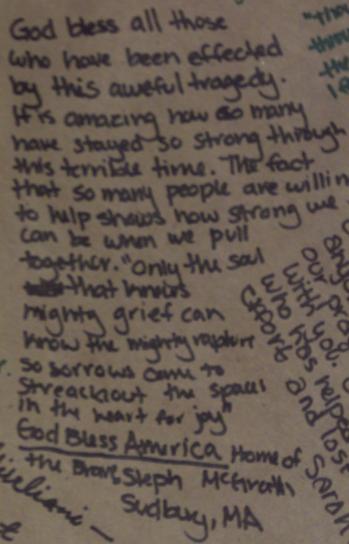 God bless all those
who have been effected
by this aweful tragedy.
It is amazing how so many
have stayed so strong through
this terrible time. The fact
that so many people are willin
to help shows how strong we
can be when we pull
together. "Only the soul
that knows
mighty grief can
know the mighty rapture
So sorrows come to
streach out the spaces
in the heart for joy"
God Bless America Home of
the Brave, Steph McGrath
Sudbury, MA
our pra
with you.
who has helped
and lost
Sarah